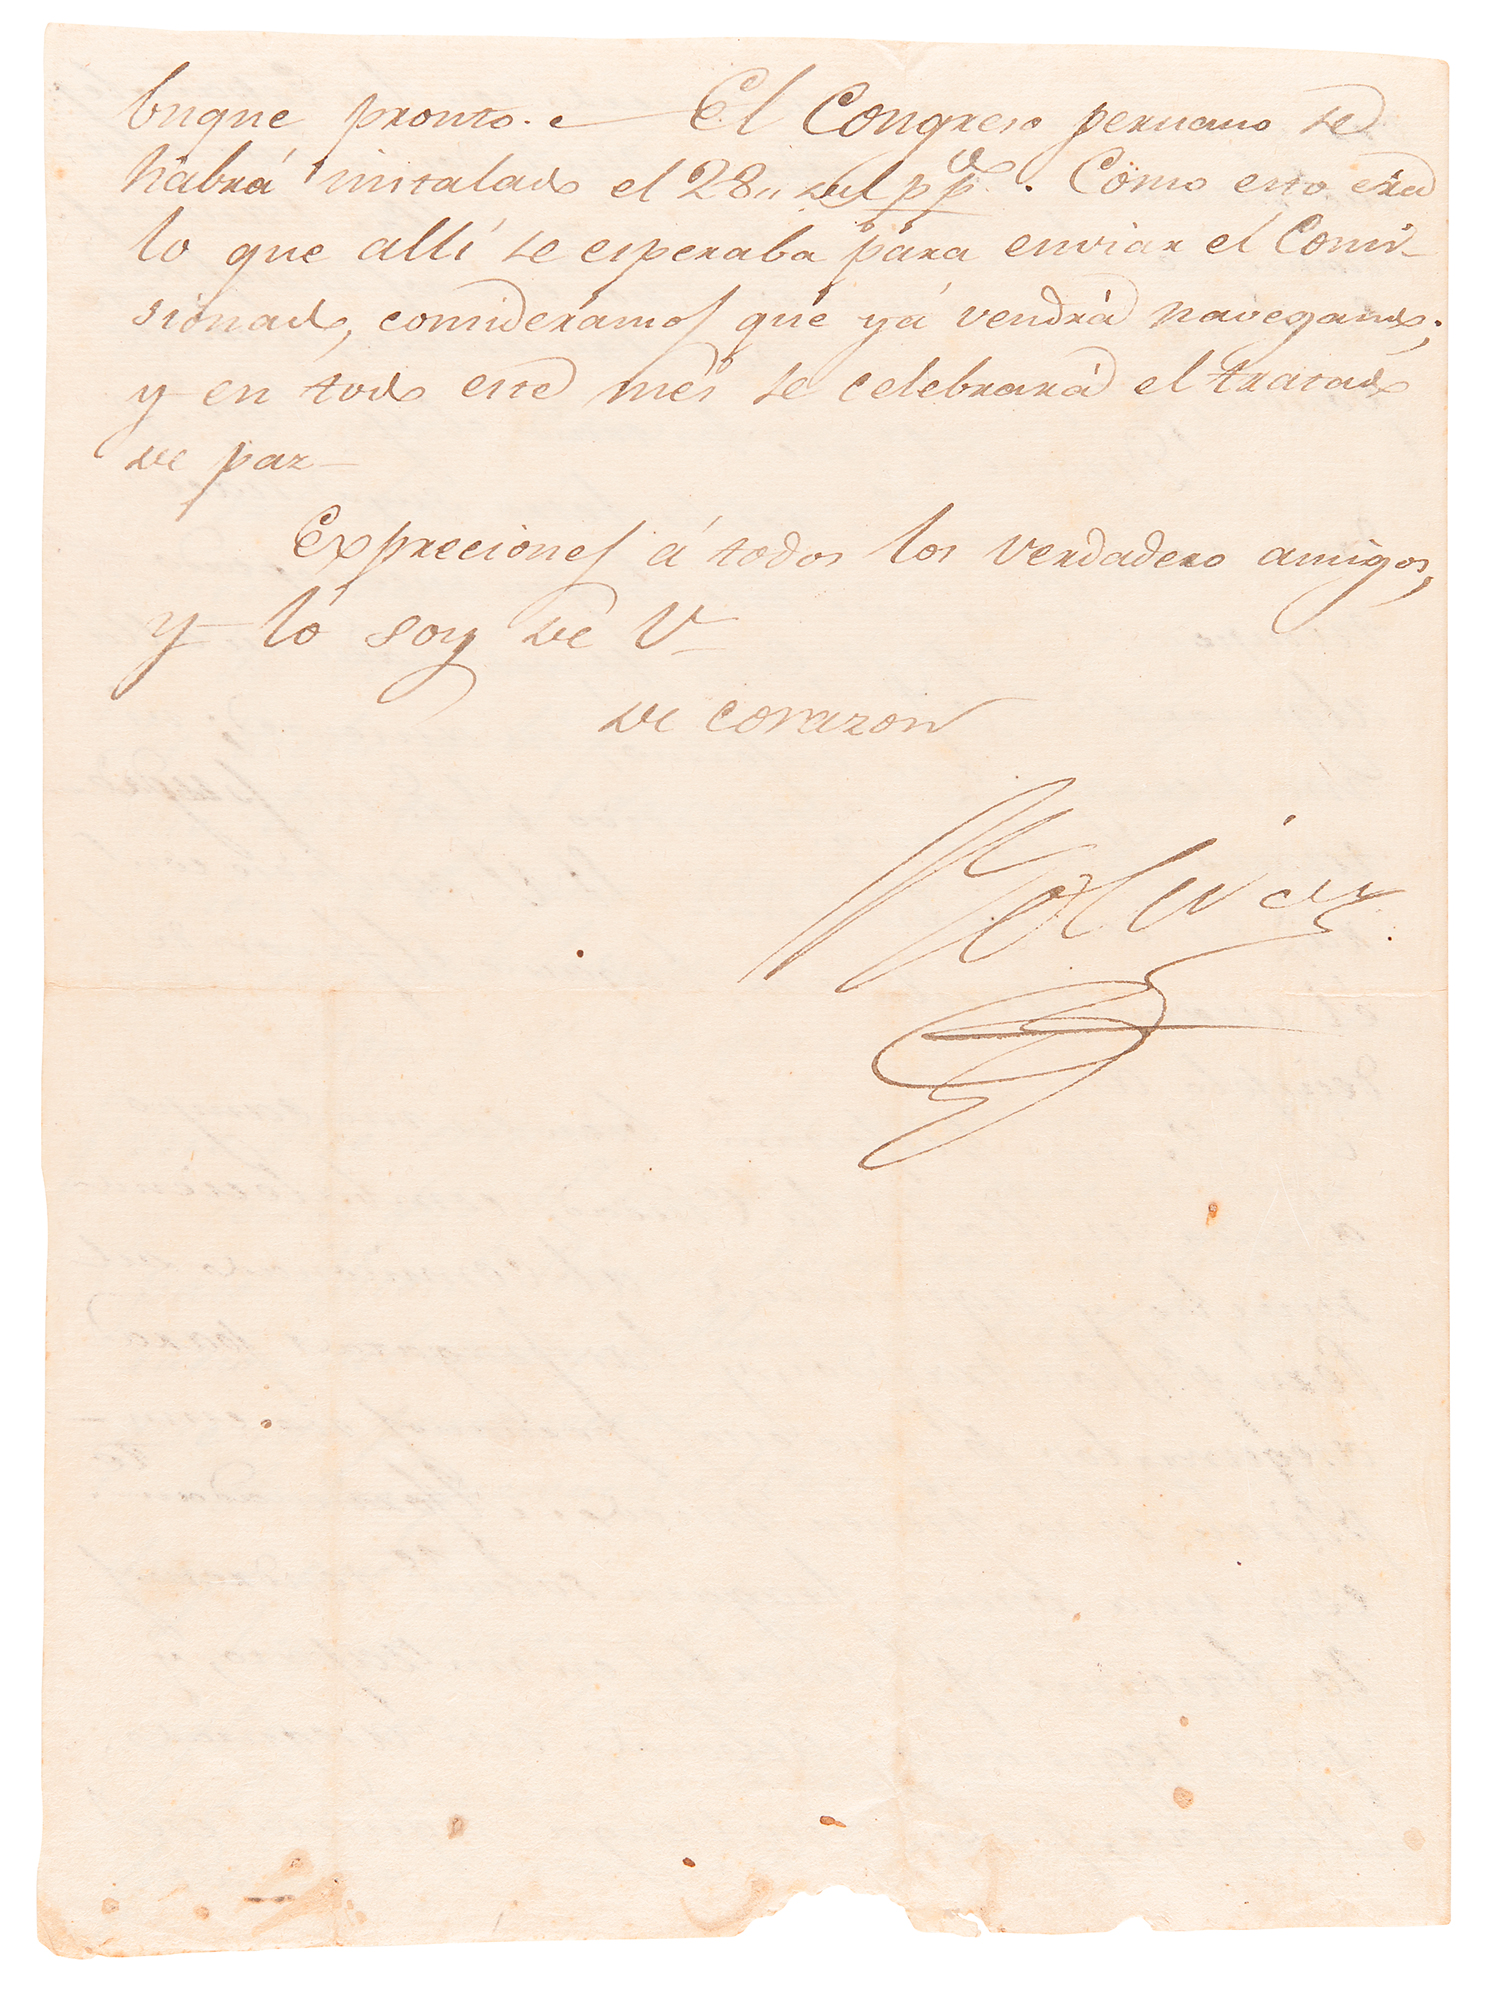 buque pronto. — El Congreso peruano se
habrá instalado el 28,, del pp.do. Como esto era
lo que allí se esperaba para enviar el Comi-
sionado, consideramos que yá vendrá navegando;
y en todo este mes se celebrará el tratado
de paz—
Expreciones á todos los verdadero amigos,
y lo soy de V—
de corazon
Bolívar.